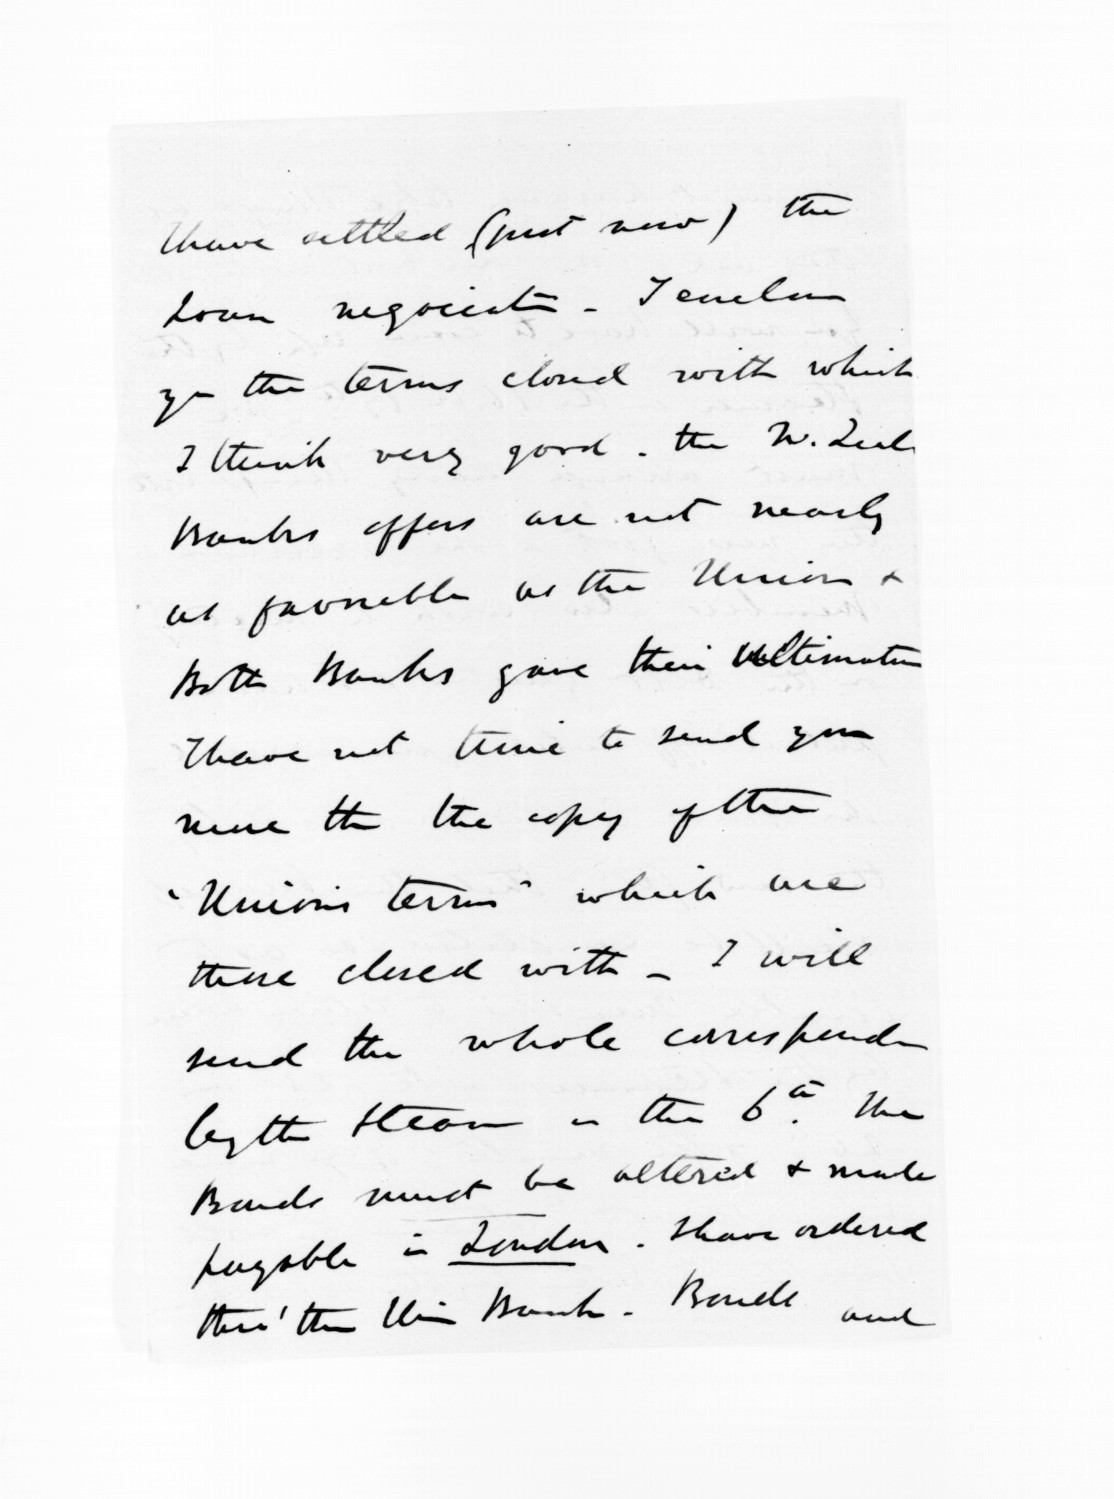 I have settled (just now) the
Loan negociatn - I enclose
yu the terms closed with which
I think very good. the N. Zeal
Banks offers are not nearly
as favorable as the Union &
Both Banks gave their Ultimatum
I have not time to send you
more thn the copy of the
"Unions terms" which are
those closed with - I will
send the whole correspondn
by the Steam on the 6th. The
Bonds must be altered & made
payable in London. I have ordered
thro' the Un Bank - Bonds and